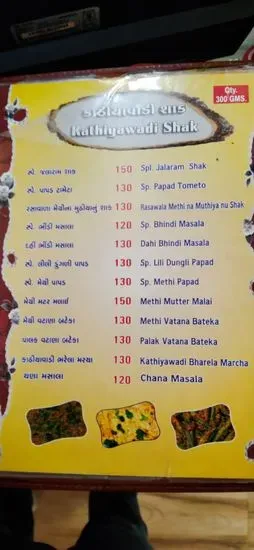 Qty.
300 GMS.
કાઠીયાવાડી શાક
Kathiyawadi Shak
સ્પે. જલારામ શાક 150 Spl. Jalaram Shak
સ્પે. પાપડ ટામેટા 130 Sp. Papad Tometo
રસાવાળા મેથીના મુઠીયાનું શાક 130 Rasawala Methi na Muthiya nu Shak
સ્પે. ભીંડી મસાલા 120 Sp. Bhindi Masala
દહીં ભીંડી મસાલા 130 Dahi Bhindi Masala
સ્પે. લીલી ડુંગળી પાપડ 130 Sp. Lili Dungli Papad
સ્પે. મેથી પાપડ 130 Sp. Methi Papad
મેથી મટર મલાઈ 150 Methi Mutter Malai
મેથી વટાણા બટેકા 130 Methi Vatana Bateka
પાલક વટાણા બટેકા 130 Palak Vatana Bateka
કાઠીયાવાડી ભરેલા મરચા 130 Kathiyawadi Bharela Marcha
ચણા મસાલા 120 Chana Masala